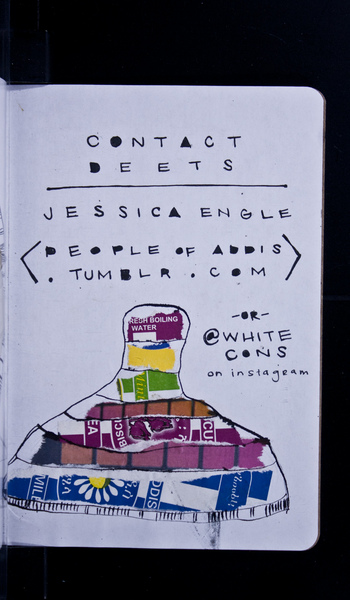 CONTACT
DEETS
JESSICA ENGLE
<PEOPLE OF ADDIS
. TUMBLR . COM>
-OR-
@WHITE
CONS
on instagram
RESH BOILING
WATER